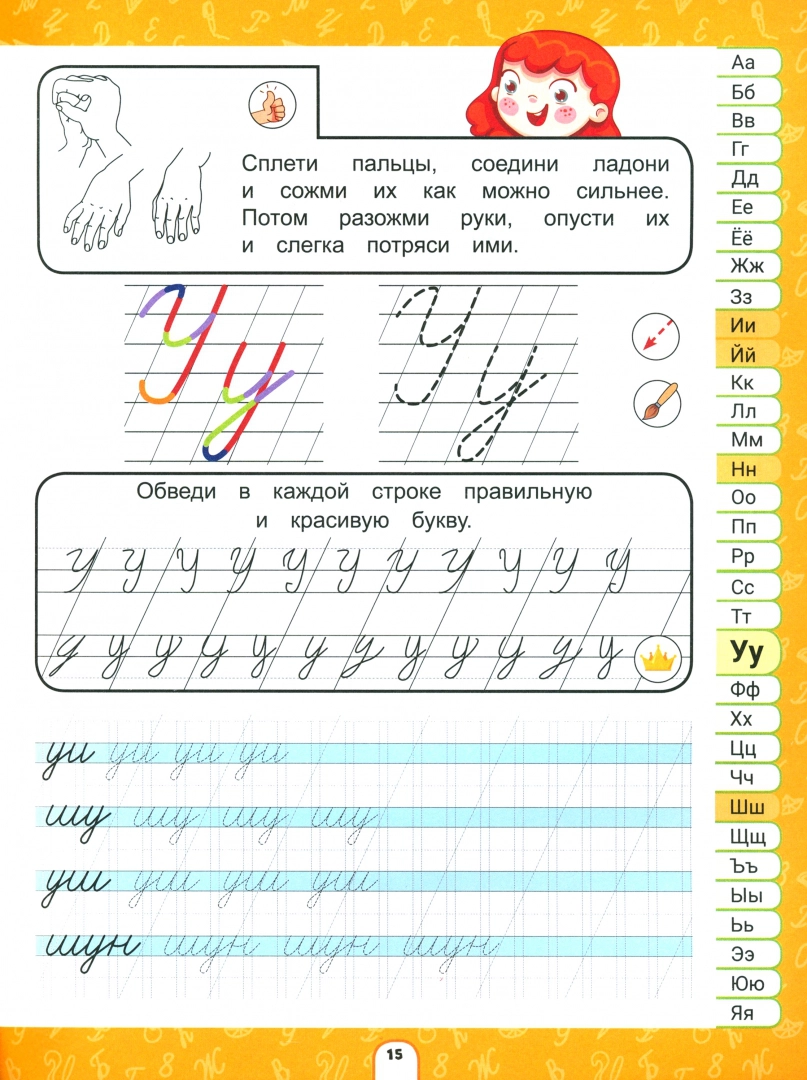 Сплети пальцы, соедини ладони
и сожми их как можно сильнее.
Потом разожми руки, опусти их
и слегка потряси ими.
У у
У у
Обведи в каждой строке правильную
и красивую букву.
У У У У У У У У У У У
у у у у у у у у у у у у
уи уи уи уи
шу шу шу шу
уш уш уш уш
шун шун шун шун
15
Аа
Бб
Вв
Гг
Дд
Ее
Ёё
Жж
Зз
Ии
Йй
Кк
Лл
Мм
Нн
Оо
Пп
Рр
Сс
Тт
Уу
Фф
Хх
Цц
Чч
Шш
Щщ
Ъъ
Ыы
Ьь
Ээ
Юю
Яя